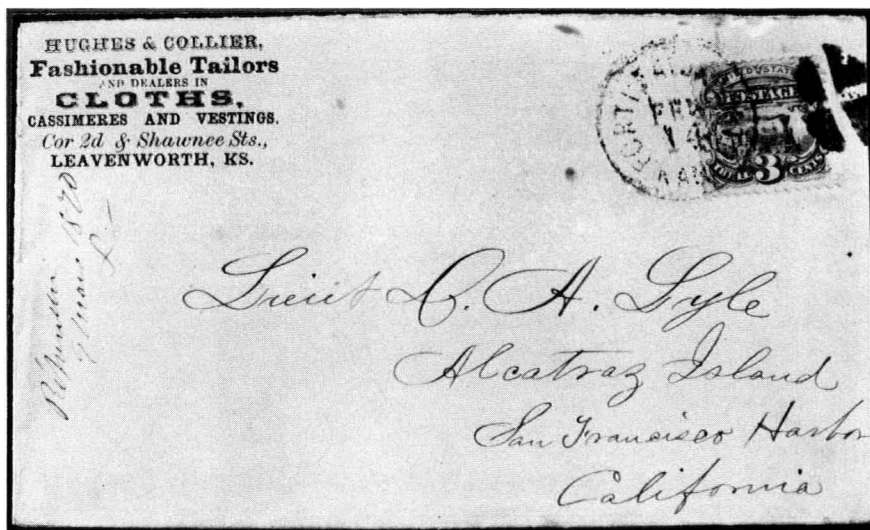 HUGHES & COLLIER,
Fashionable Tailors
AND DEALERS IN
CLOTHS,
CASSIMERES AND VESTINGS.
Cor 2d & Shawnee Sts.,
LEAVENWORTH, KS.
FORT
FEB
14
KAN
3
1870
Lieut D. A. Lyle
Alcatraz Island
San Francisco Harbor
California